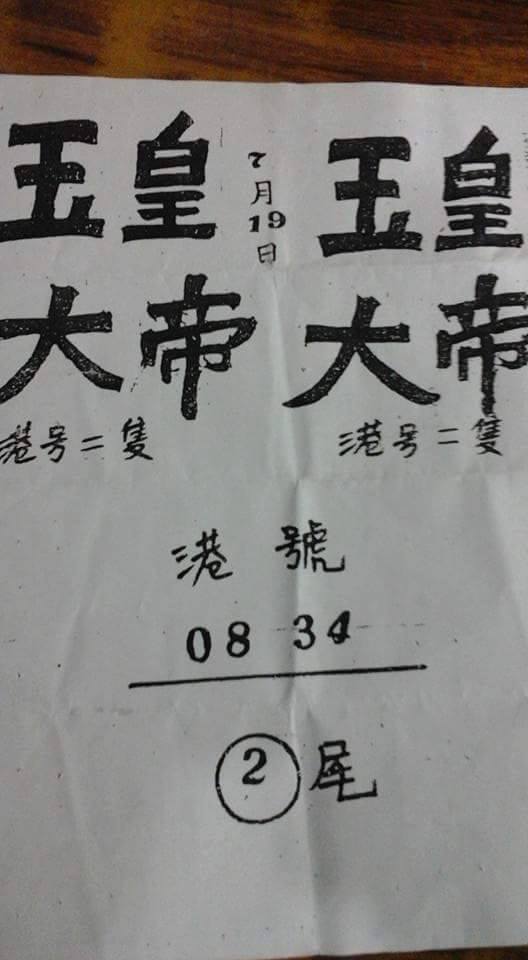 玉皇
大帝
港号二隻
7月19日
玉皇
大帝
港号二隻
港號
08 34
2尾